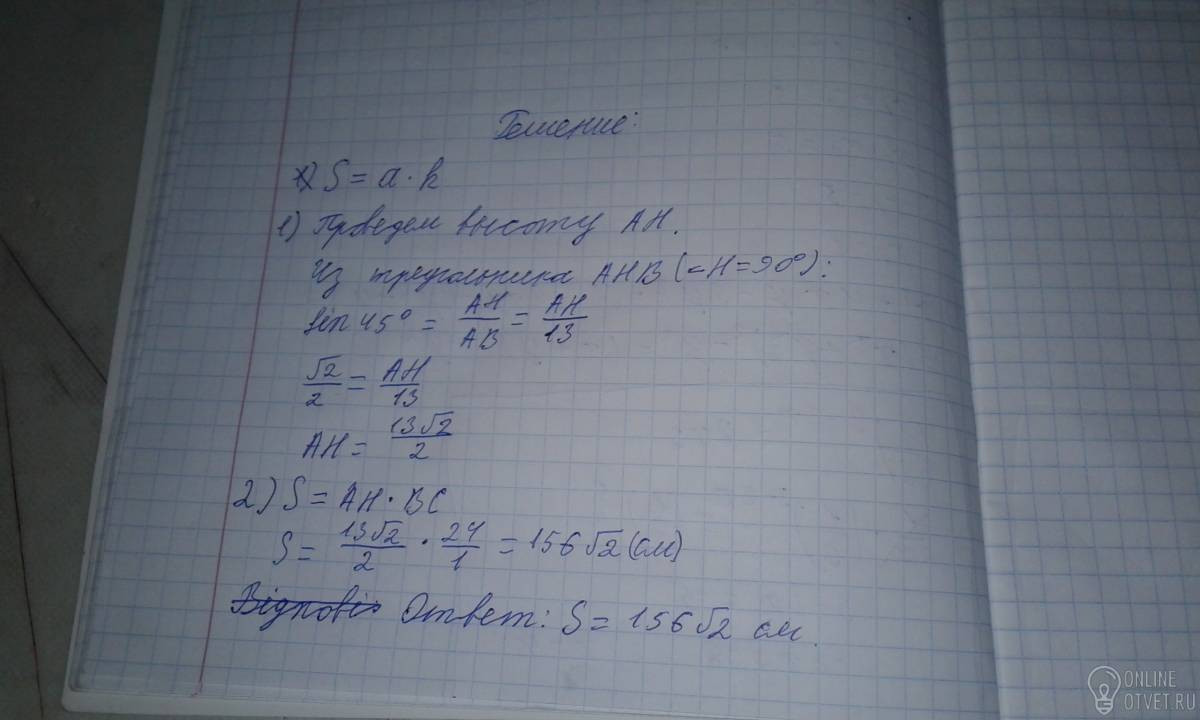 Решение:
1) S = a · h
1) Проведем высоту AH.
Из треугольника AHB (<H=90°):
sin 45° = AH/AB = AH/13
√2/2 = AH/13
AH = 13√2/2
2) S = AH · BC
S = 13√2/2 · 24/1 = 156√2 (см)
Відпові Ответ: S = 156√2 см.
ONLINE
OTVET.RU